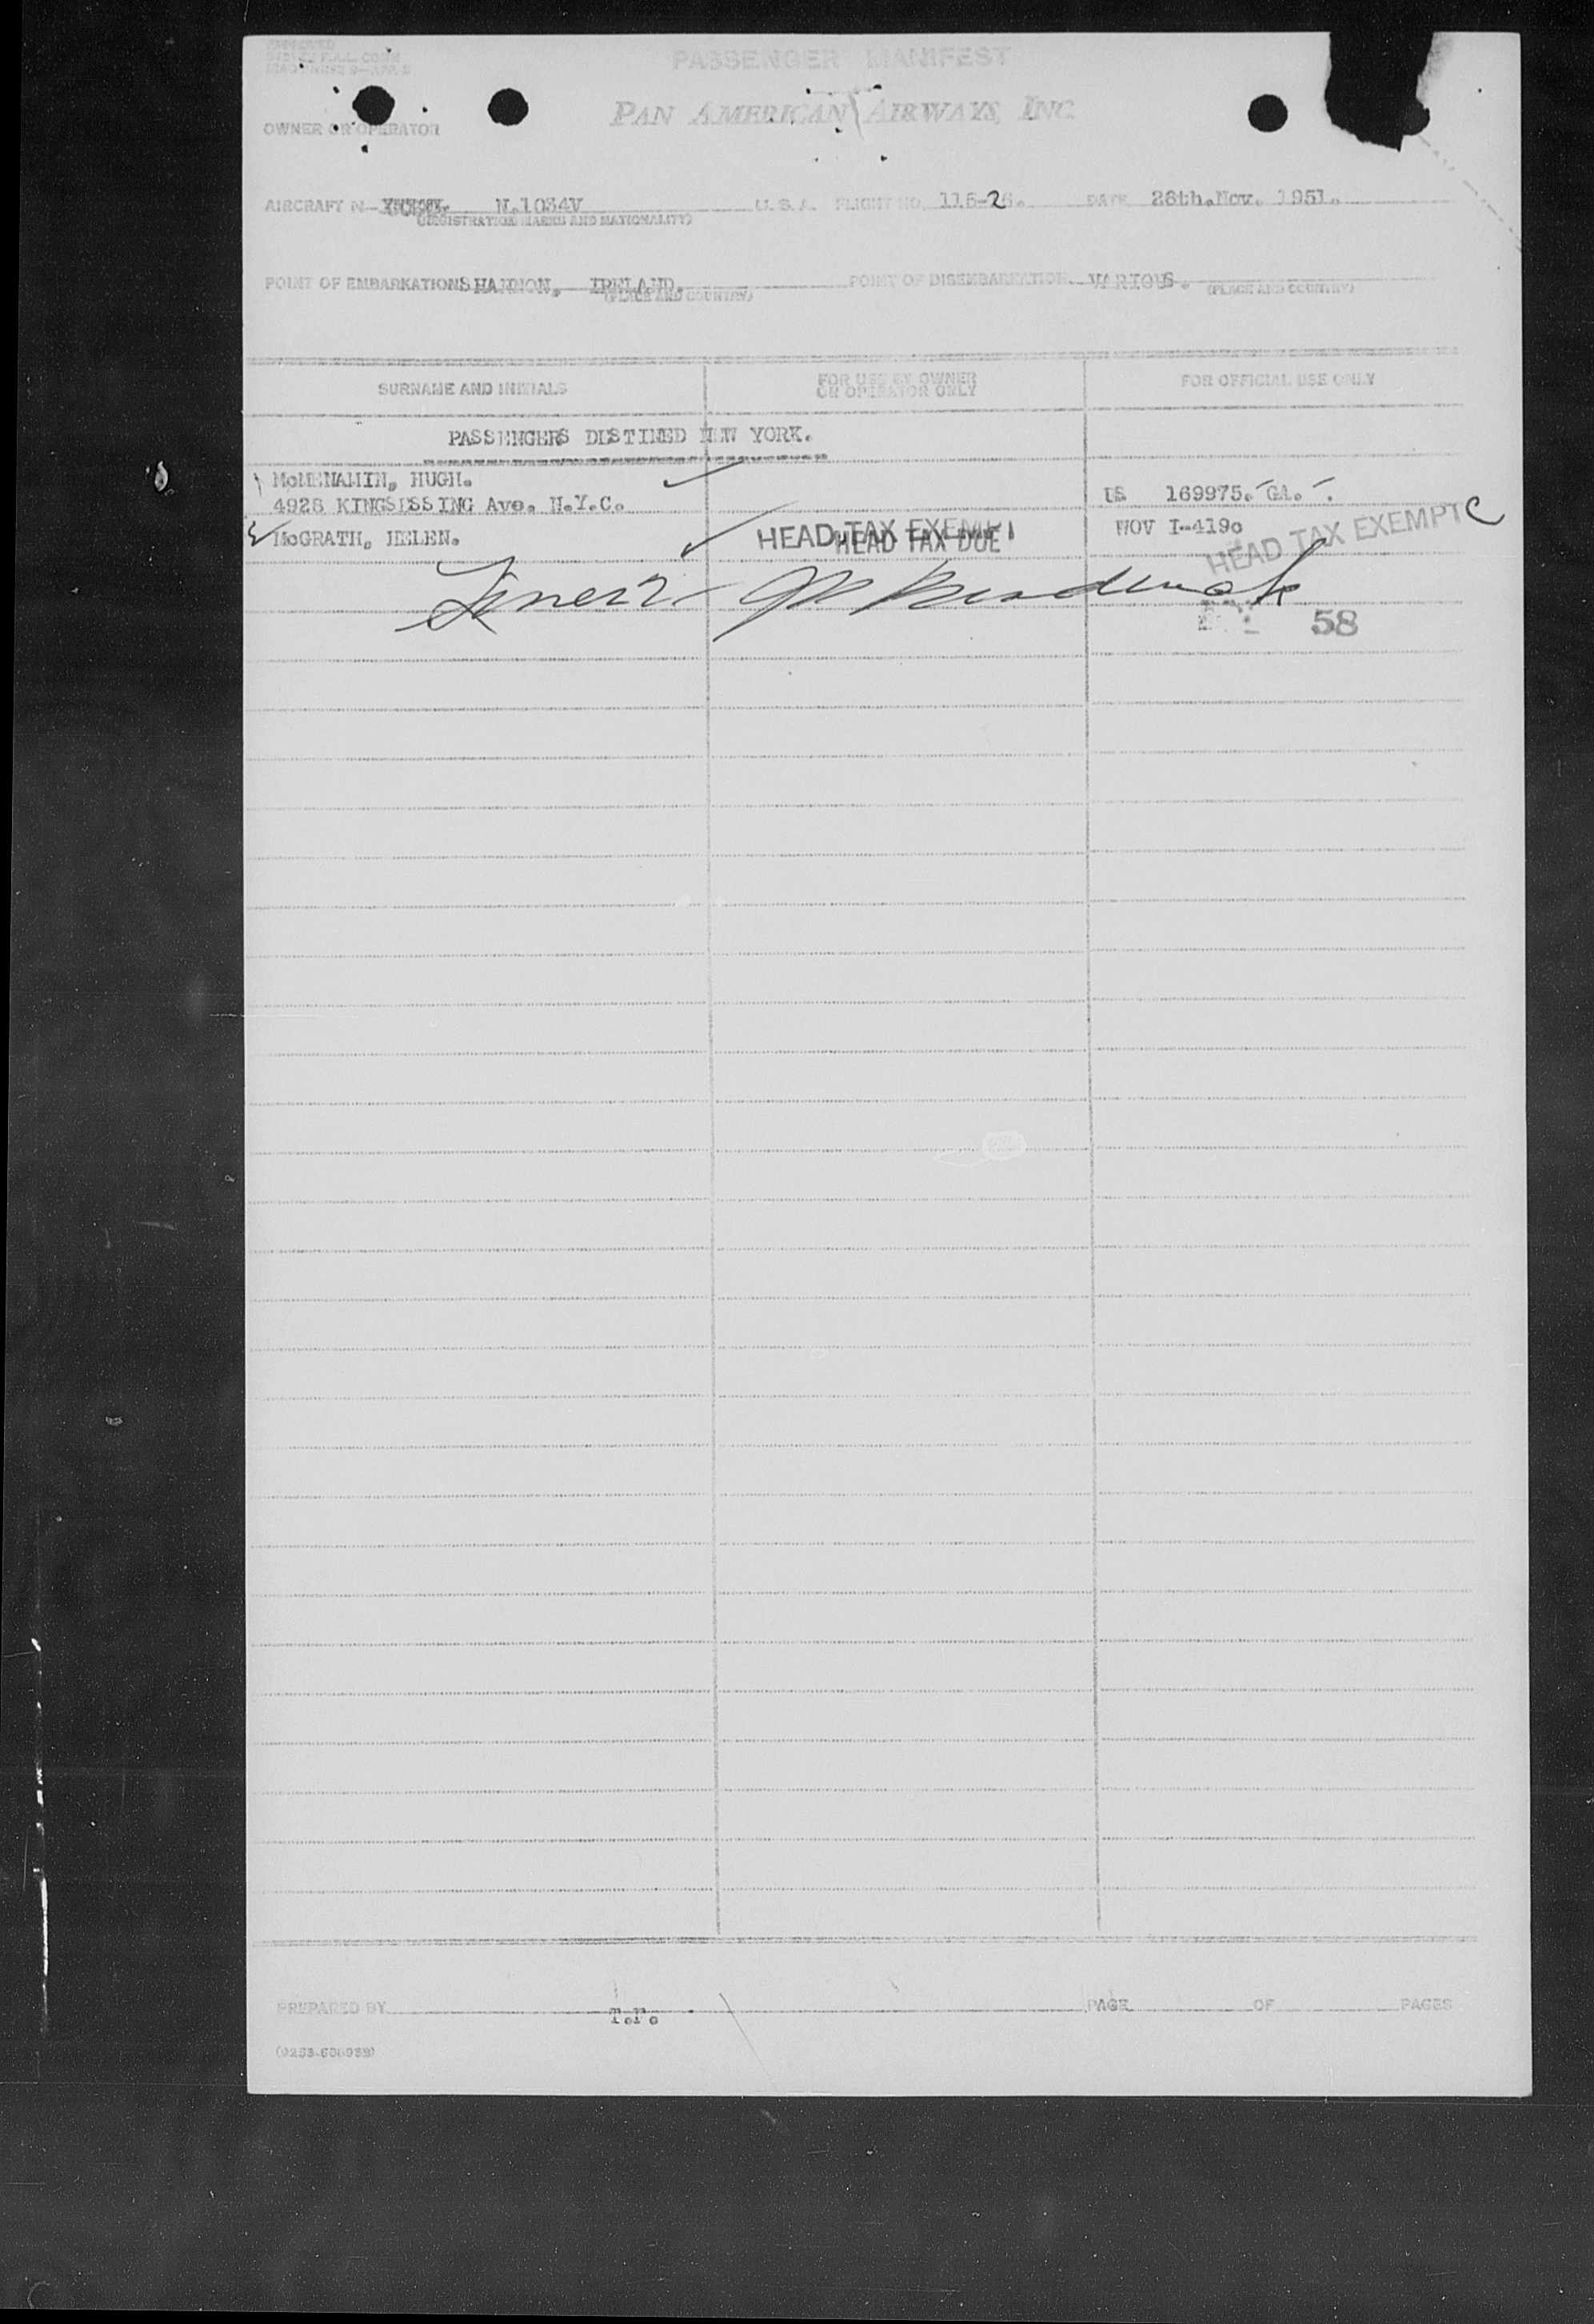 APPROVED
PASSENGER MANIFEST
PAN AMERICAN AIRWAYS, INC.
OWNER OR OPERATOR
AIRCRAFT N- N.1034V U.S.A. FLIGHT NO. DATE 28th.Nov. 1951.
(REGISTRATION MARKS AND NATIONALITY)
POINT OF EMBARKATION SHANNON, IRELAND. POINT OF DISEMBARKATION VARIOUS.
(PLACE AND COUNTRY) (PLACE AND COUNTRY)
SURNAME AND INITIALS FOR USE BY OWNER OR OPERATOR ONLY FOR OFFICIAL USE ONLY
PASSENGERS DISTINED NEW YORK.
McMENAMIN, HUGH.
4928 KINGSESSING Ave. N.Y.C. US 169975. GA.
McGRATH, HELEN. HEAD TAX EXEMPT NOV I-419c
HEAD TAX DUE HEAD TAX EXEMPT C
58
PREPARED BY PAGE OF PAGES